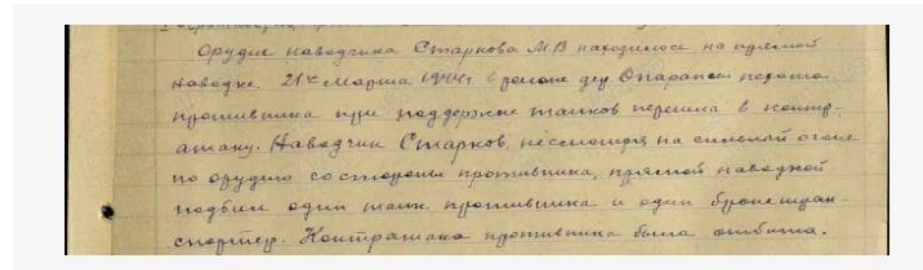 Орудие наводчика Старкова М.В находилось на прямой
наводке. 21го марта 1944г. в районе дер. пехота
противника при поддержке танков перешла в контр-
атаку. Наводчик Старков, несмотря на сильный огонь
по орудию со стороны противника, прямой наводкой
подбил один танк противника и один бронетран-
спортер. Контратака противника была отбита.